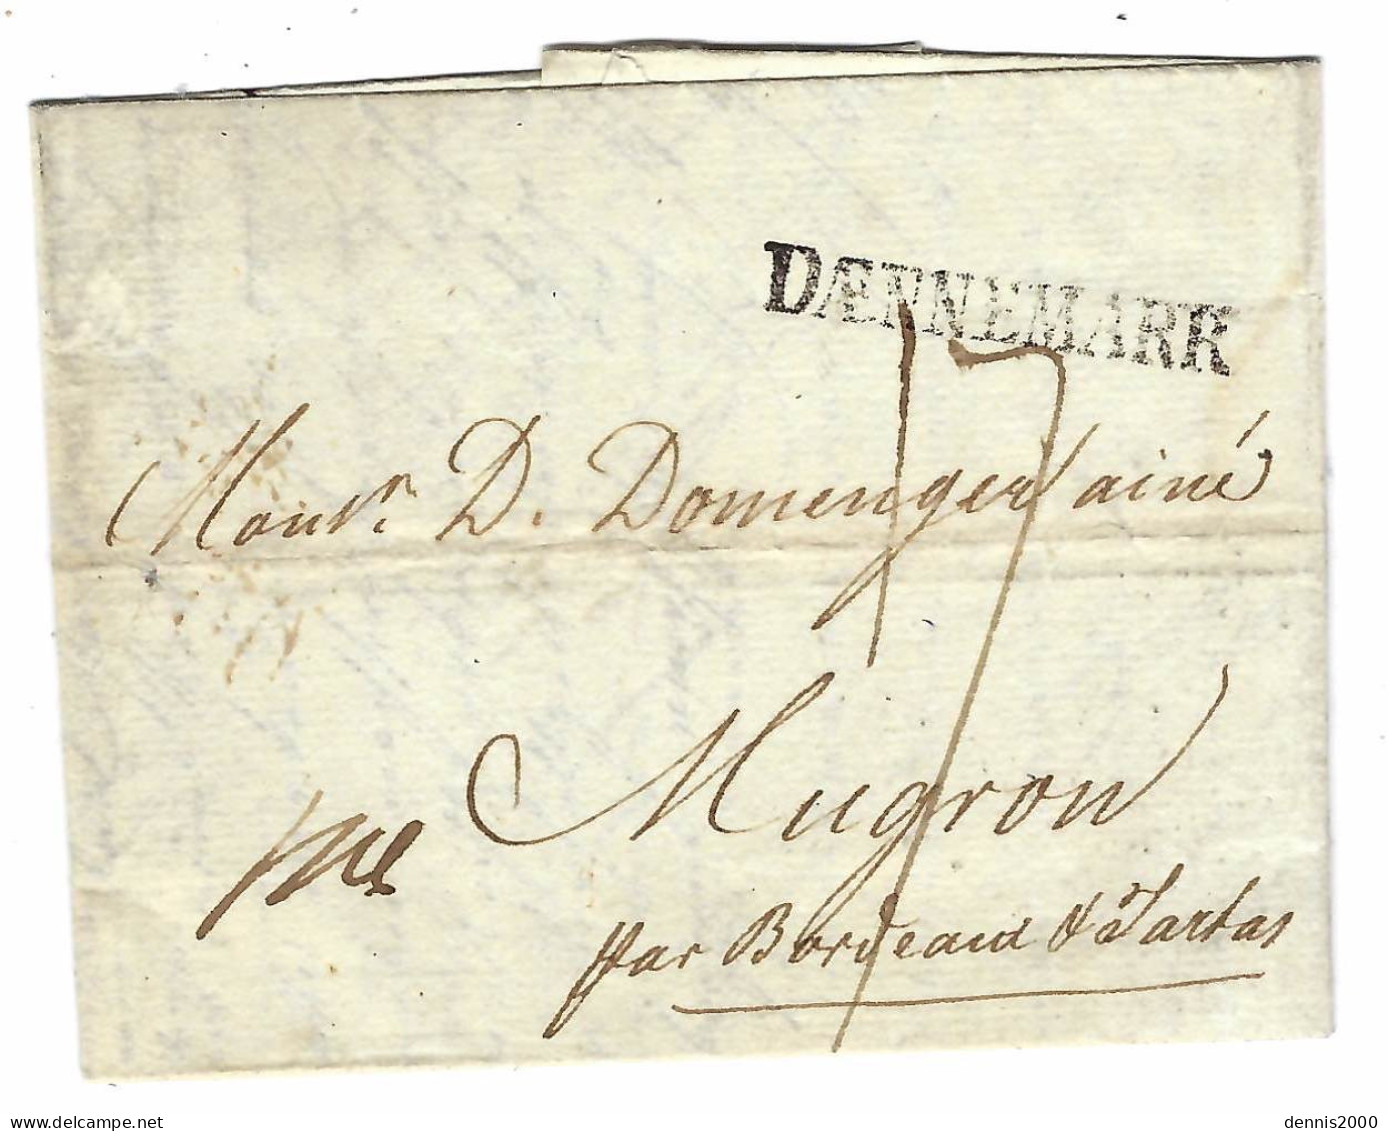 DÆNNEMARK
17
Monsr. D. Domenger ainé
Mugron
par Bordeaux & à Tartas
www.delcampe.net
dennis2000